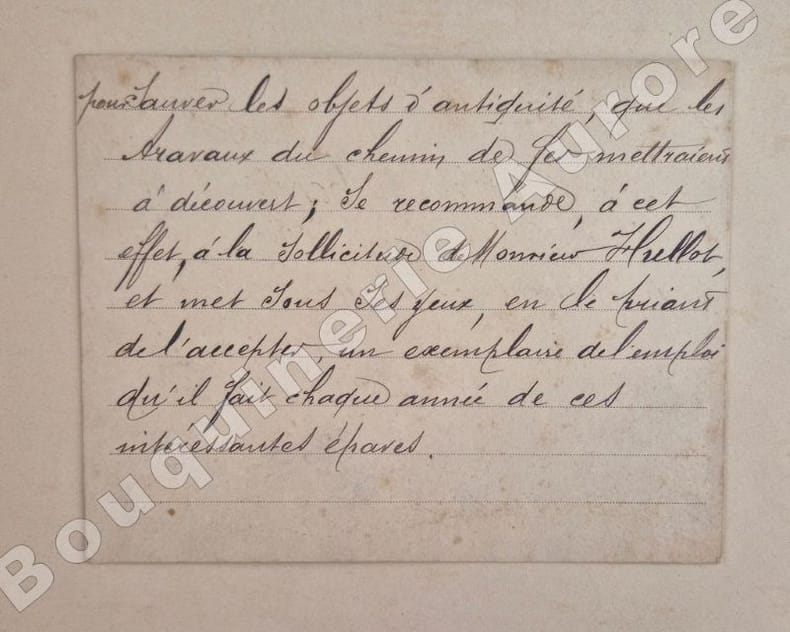 pour sauver les objets d'antiquité, que les
travaux du chemin de fer mettraient
à découvert ; se recommande, à cet
effet, à la sollicitude de Monsieur Hullot,
et met sous ses yeux, en le priant
de l'accepter, un exemplaire de l'emploi
qu'il fait chaque année de ces
intéressantes épaves.
Bouquinerie Aurore